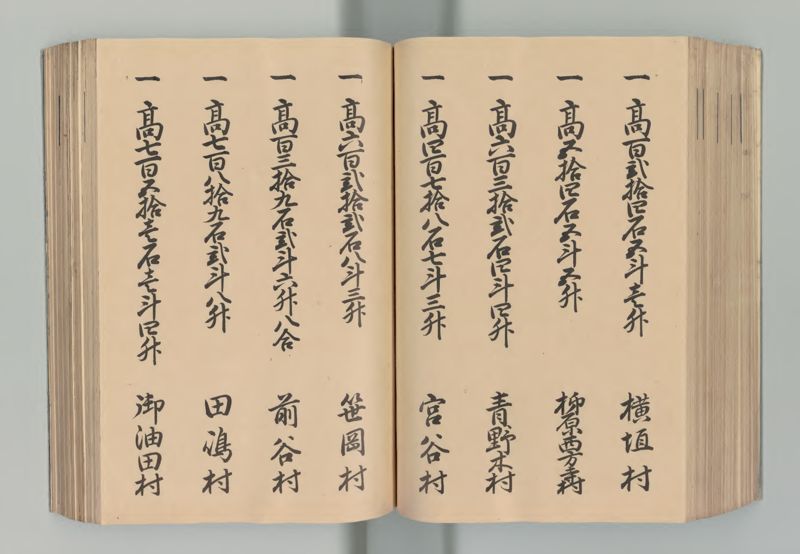 一 高百弐拾四石五斗壱升 横垣村
一 高五拾四石五斗五升 柳原西方寺村
一 高六百三拾弐石四斗四升 青野木村
一 高四百七拾八石七斗三升 宮谷村
一 高六百弐拾弐石八斗三升 笹岡村
一 高百三拾九石弐斗六升八合 前谷村
一 高七百八拾九石弐斗八升 田嶋村
一 高七百五拾壱石壱斗四升 御油田村